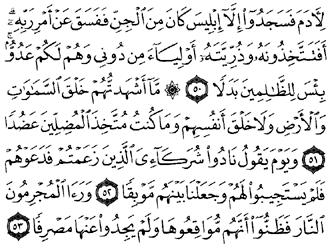 لِأَدَمَ فَسَجَدُوٓا۟ إِلَّآ إِبْلِيسَ كَانَ مِنَ ٱلْجِنِّ فَفَسَقَ عَنْ أَمْرِ رَبِّهِۦٓ ۗ
أَفَتَتَّخِذُونَهُۥ وَذُرِّيَّتَهُۥٓ أَوْلِيَآءَ مِن دُونِى وَهُمْ لَكُمْ عَدُوٌّۢ ۚ
بِئْسَ لِلظَّـٰلِمِينَ بَدَلًا ۝٥٠ ۞ مَّآ أَشْهَدتُّهُمْ خَلْقَ ٱلسَّمَـٰوَٰتِ
وَٱلْأَرْضِ وَلَا خَلْقَ أَنفُسِهِمْ وَمَا كُنتُ مُتَّخِذَ ٱلْمُضِلِّينَ عَضُدًا
۝٥١ وَيَوْمَ يَقُولُ نَادُوا۟ شُرَكَآءِىَ ٱلَّذِينَ زَعَمْتُمْ فَدَعَوْهُمْ
فَلَمْ يَسْتَجِيبُوا۟ لَهُمْ وَجَعَلْنَا بَيْنَهُم مَّوْبِقًا ۝٥٢ وَرَءَا ٱلْمُجْرِمُونَ
ٱلنَّارَ فَظَنُّوٓا۟ أَنَّهُم مُّوَاقِعُوهَا وَلَمْ يَجِدُوا۟ عَنْهَا مَصْرِفًا ۝٥٣